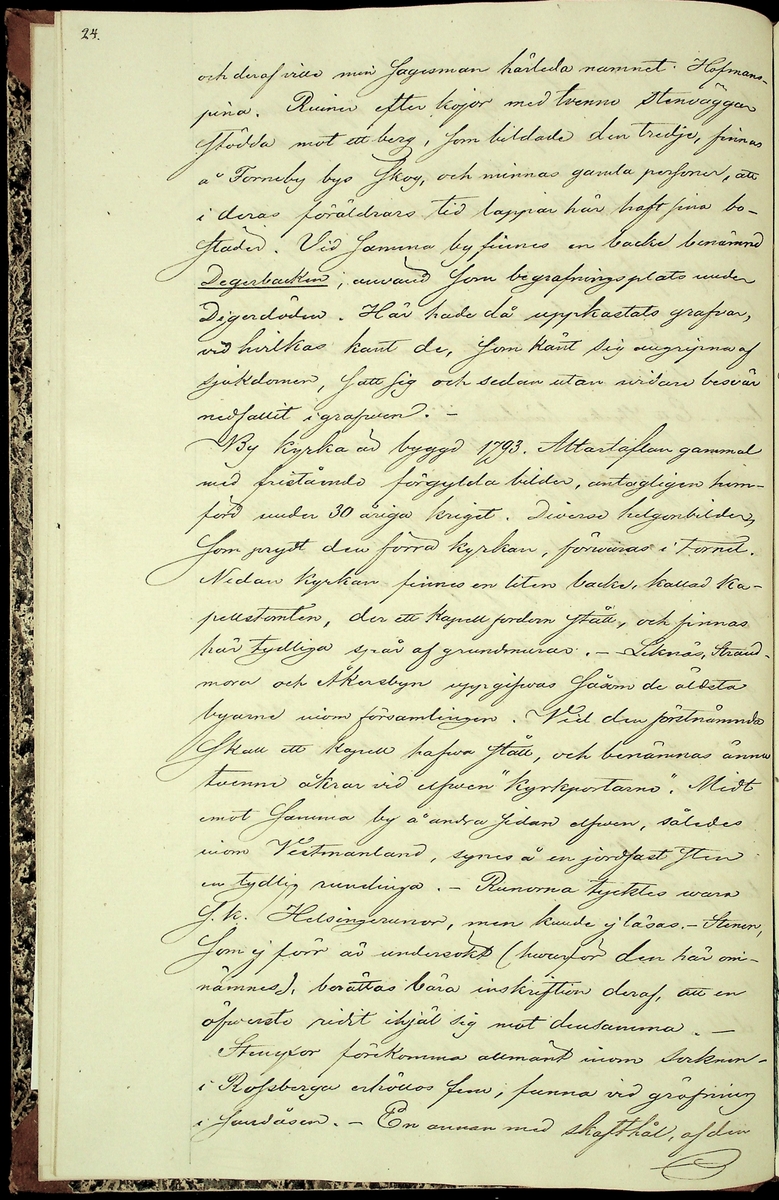 24.
och deraf ville min sagesman härleda namnet Hofmans-
pina. Ruiner efter kojor med tvenne stenväggar
stödda mot ett berg, som bildade den tredje, finnas
å Forneby bys skog, och minnas gamla personer, att
i deras föräldrars tid lappar här haft sina bo-
städer. Vid samma by finnes en backe benämnd
Degerbacken, använd som begrafningsplats under
Digerdöden. Här hade då uppkastats grafvar,
vid hvilkas kant de, som känt sig angripna af
sjukdomen, satt sig och sedan utan vidare besvär
nedfallit i grafven. –
By kyrka är byggd 1793. Altartaflan gammal
med fristående förgylda bilder, antagligen hem-
förd under 30 åriga kriget. Diverse helgonbilder,
som prydt den förra kyrkan, förvaras i tornet.
Nedan kyrkan finnes en liten backe, kallad Ka-
pellstomten, der ett kapell fordom stått, och finnas
här tydliga spår af grundmurar. – Leknäs, Strand-
mora och Åkersbyn uppgifvas såsom de äldsta
byarne inom församlingen. Vid den förstnämnda
skall ett kapell hafva stått, och benämnas ännu
tvenne åkrar vid elfven "Kyrkportarne". Midt
emot samma by å andra sidan elfven, således
inom Vestmanland, synes å en jordfast sten
en tydlig runslinga. – Runorna tycktes vara
s. k. Helsingerunor, men kunde ej läsas. – Stenen,
som ej förr är undersökt (hvarför den här om-
nämnes), berättas bära inskriftion deraf, att en
öfverste ridit ihjäl sig mot densamma. –
Stenyxor förekomma allmänt inom socknen –
i Rossberga erhöllos fem, funna vid gräfning
i sandåsen. – En annan med skafthål, af den